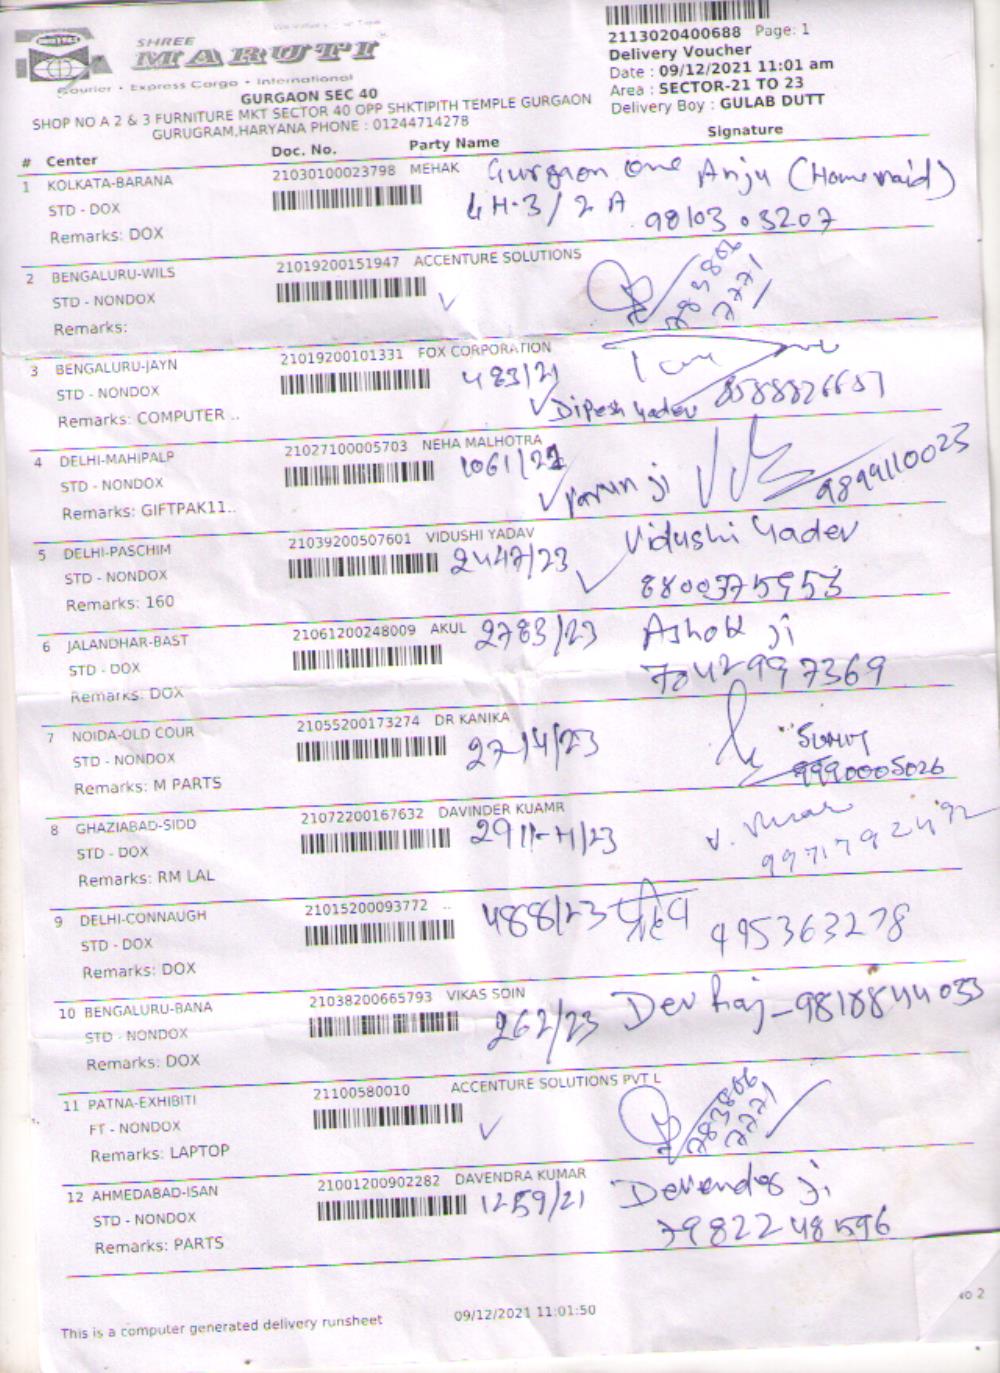 SHREE
MARUTI
Courier • Express Cargo • International
GURGAON SEC 40
SHOP NO A 2 & 3 FURNITURE MKT SECTOR 40 OPP SHKTIPITH TEMPLE GURGAON
GURUGRAM,HARYANA PHONE : 01244714278
2113020400688 Page: 1
Delivery Voucher
Date : 09/12/2021 11:01 am
Area : SECTOR-21 TO 23
Delivery Boy : GULAB DUTT
# Center Doc. No. Party Name Signature
1 KOLKATA-BARANA 21030100023798 MEHAK Gurgaon one Anju (Homemaid)
STD - DOX 4H-3/2A 98103 03207
Remarks: DOX
2 BENGALURU-WILS 21019200151947 ACCENTURE SOLUTIONS
STD - NONDOX
Remarks:
3 BENGALURU-JAYN 21019200101331 FOX CORPORATION
STD - NONDOX 483/21
Remarks: COMPUTER .. Dipesh Yadav 8588826687
4 DELHI-MAHIPALP 21027100005703 NEHA MALHOTRA
STD - NONDOX 1061/22
Remarks: GIFTPAK11.. ji 9899110023
5 DELHI-PASCHIM 21039200507601 VIDUSHI YADAV Vidushi Yadav
STD - NONDOX 2447/23
Remarks: 160 8800375953
6 JALANDHAR-BAST 21061200248009 AKUL 2783/23 Ashok ji
STD - DOX 7042997369
Remarks: DOX
7 NOIDA-OLD COUR 21055200173274 DR KANIKA
STD - NONDOX 2714/23
Remarks: M PARTS 9990005026
8 GHAZIABAD-SIDD 21072200167632 DAVINDER KUAMR
STD - DOX
Remarks: RM LAL
9 DELHI-CONNAUGH 21015200093772 .. 488/23
STD - DOX 495363278
Remarks: DOX
10 BENGALURU-BANA 21038200665793 VIKAS SOIN Dev Raj - 9818844033
STD - NONDOX 262/23
Remarks: DOX
11 PATNA-EXHIBITI 21100580010 ACCENTURE SOLUTIONS PVT L
FT - NONDOX
Remarks: LAPTOP
12 AHMEDABAD-ISAN 21001200902282 DAVENDRA KUMAR
STD - NONDOX 1259/21 ji
Remarks: PARTS 7982248596
This is a computer generated delivery runsheet 09/12/2021 11:01:50